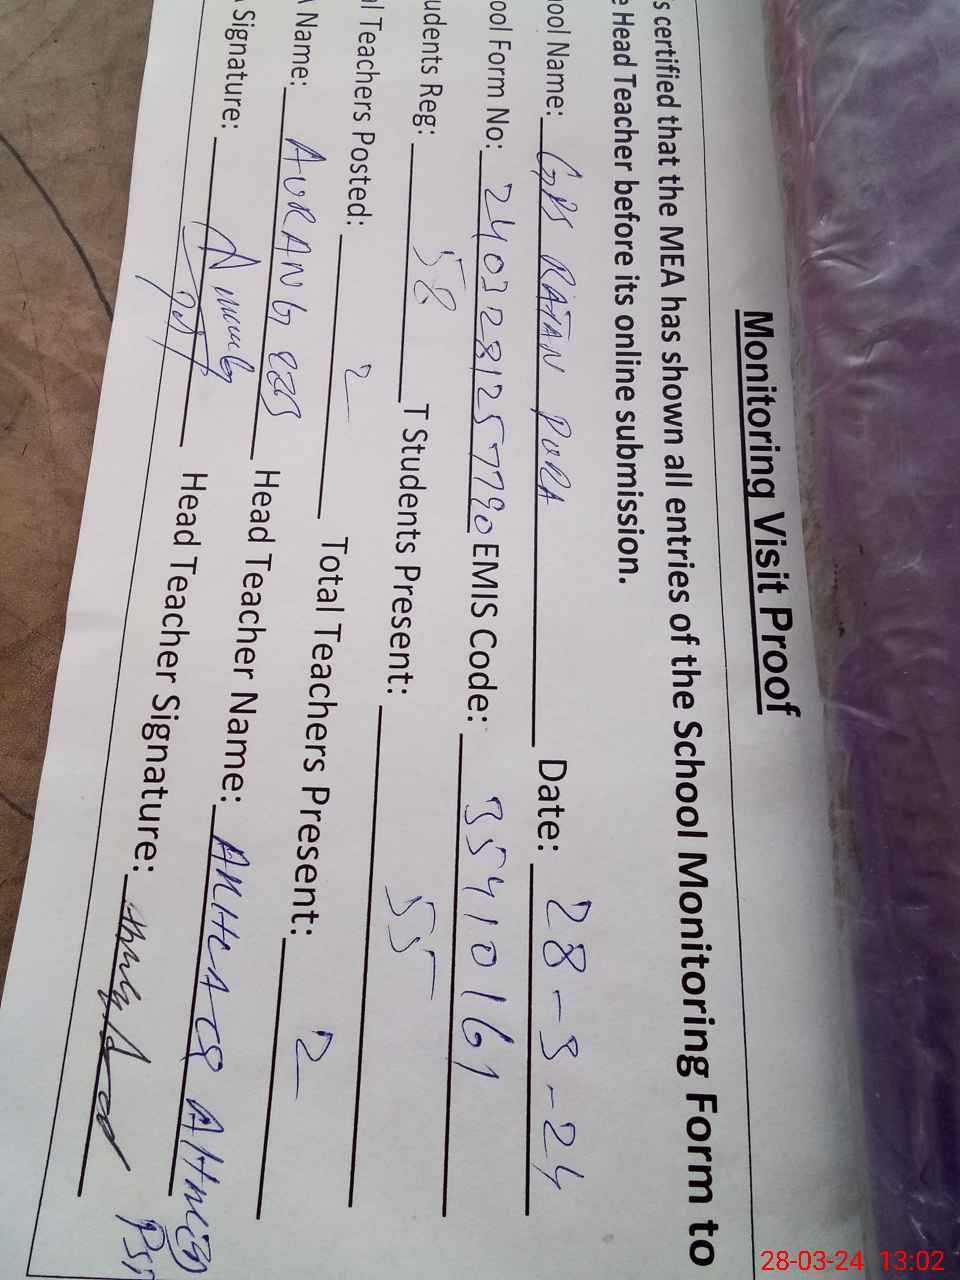 Monitoring Visit Proof
s certified that the MEA has shown all entries of the School Monitoring Form to
e Head Teacher before its online submission.
ool Name: GPS RATAN PURA Date: 28-3-24
ool Form No: 2403281257790 EMIS Code: 35410161
udents Reg: 58 T Students Present: 55
l Teachers Posted: 2 Total Teachers Present: 2
A Name: AURANG Head Teacher Name: AHMED
A Signature: Head Teacher Signature: PST
28-03-24 13:02